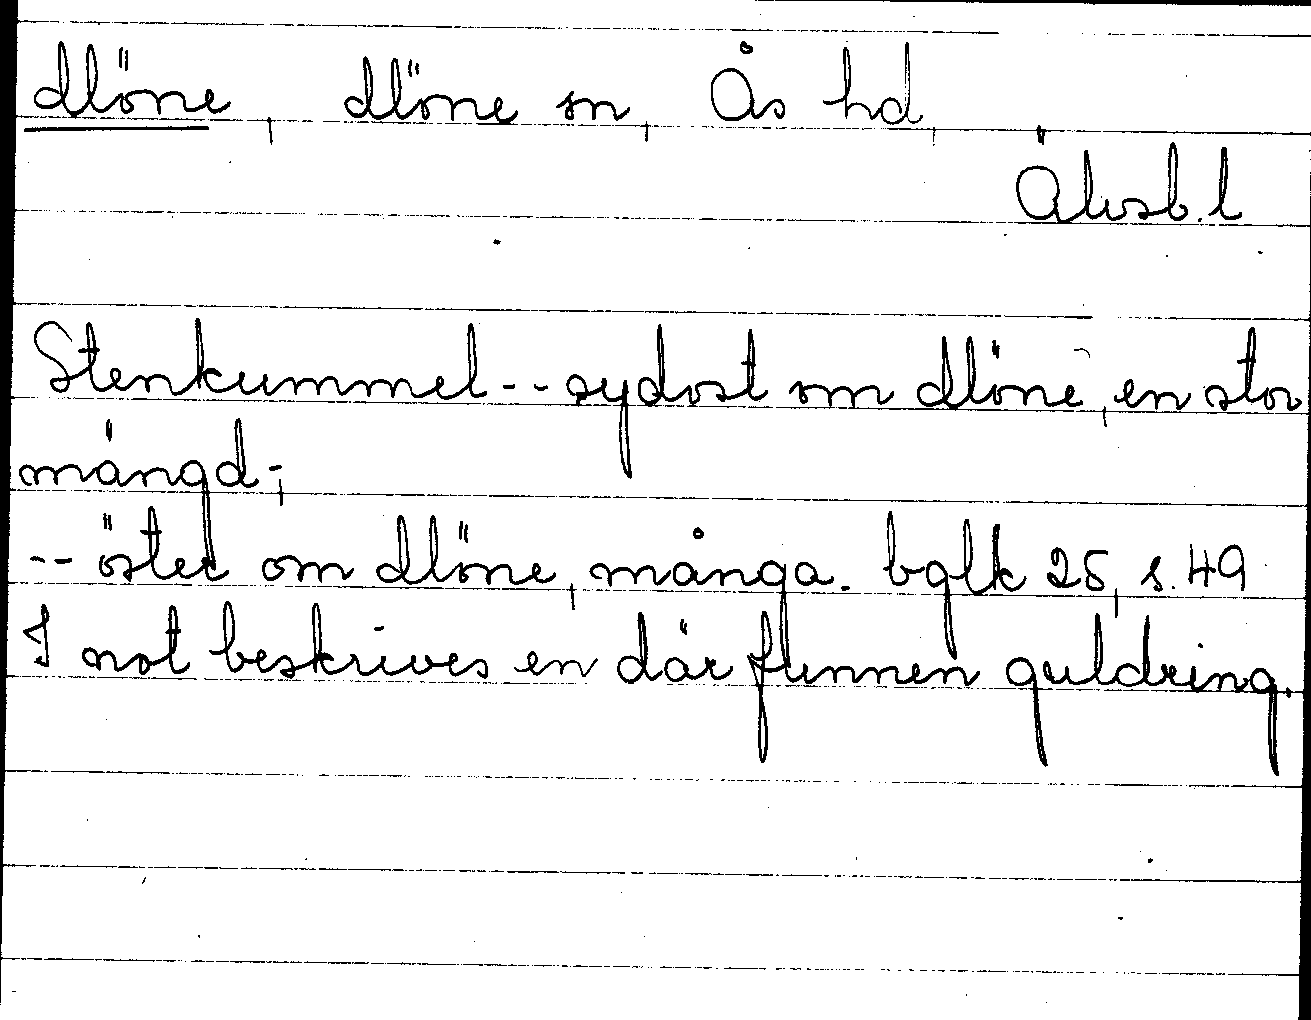 Möne, Möne sn, Ås hd,
Älvsb. l
Stenkummel -- sydost om Möne, en stor
mängd -;
-- öster om Möne, många. bglk 25, s. 49
I not beskrives en där funnen guldring.